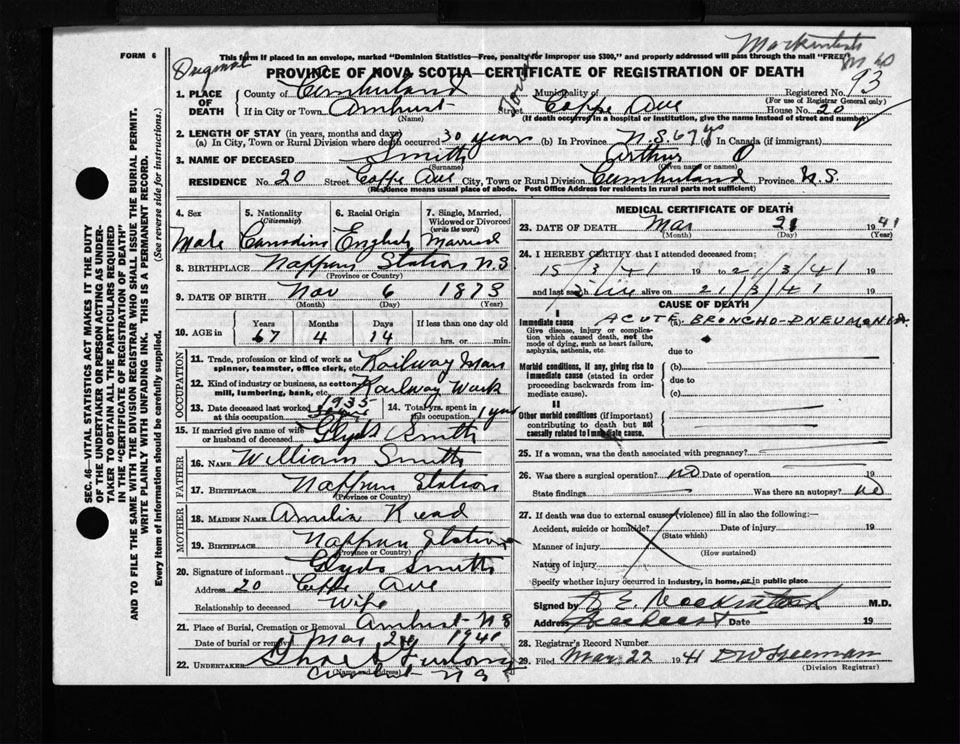 FORM 6
This form if placed in an envelope, marked "Dominion Statistics—Free, penalty for improper use $300," and properly addressed will pass through the mail "FREE"
Original
PROVINCE OF NOVA SCOTIA—CERTIFICATE OF REGISTRATION OF DEATH
1. PLACE OF DEATH
County of Cumberland Municipality of Registered No. 93
(For use of Registrar General only)
If in City or Town Amherst Street Copp Ave House No. 20
(Name) (If death occurred in a hospital or institution, give the name instead of street and number)
2. LENGTH OF STAY (in years, months and days)
(a) In City, Town or Rural Division where death occurred 30 years (b) In Province N.S. 67 yrs (c) In Canada (if immigrant)
3. NAME OF DECEASED Smith Arthur O
(Surname) (Given name or names)
RESIDENCE No. 20 Street Copp Ave City, Town or Rural Division Cumberland Province N.S.
(Residence means usual place of abode. Post Office Address for residents in rural parts not sufficient)
SEC. 46—VITAL STATISTICS ACT MAKES IT THE DUTY
OF THE UNDERTAKER OR PERSON ACTING AS UNDER-
TAKER TO OBTAIN ALL THE PARTICULARS REQUIRED
IN THE "CERTIFICATE OF REGISTRATION OF DEATH"
AND TO FILE THE SAME WITH THE DIVISION REGISTRAR WHO SHALL ISSUE THE BURIAL PERMIT.
WRITE PLAINLY WITH UNFADING INK. THIS IS A PERMANENT RECORD.
Every item of information should be carefully supplied. (See reverse side for instructions.)
4. Sex 5. Nationality (Citizenship) 6. Racial Origin 7. Single, Married, Widowed or Divorced (write the word)
Male Canadian English Married
8. BIRTHPLACE Nappan Station N.S
(Province or Country)
9. DATE OF BIRTH Nov 6 1873
(Month) (Day) (Year)
10. AGE in Years Months Days If less than one day old
67 4 14 hrs. or min.
OCCUPATION
11. Trade, profession or kind of work as spinner, teamster, office clerk, etc. Railway Man
12. Kind of industry or business, as cotton mill, lumbering, bank, etc. Railway Work
13. Date deceased last worked at this occupation 1935 14. Total yrs. spent in this occupation 1 year
15. If married give name of wife or husband of deceased Glyds Smith
FATHER
16. NAME William Smith
17. BIRTHPLACE Nappan Station
(Province or Country)
MOTHER
18. MAIDEN NAME Amelia Read
19. BIRTHPLACE Nappan Station
(Province or Country)
20. Signature of informant Glyds Smith
Address 20 Copp Ave
Relationship to deceased Wife
21. Place of Burial, Cremation or Removal Amherst N S
Date of burial or removal Mar 24 1941
22. UNDERTAKER Furlong
Amherst N S
(Name and address)
MEDICAL CERTIFICATE OF DEATH
23. DATE OF DEATH Mar 21 1941
(Month) (Day) (Year)
24. I HEREBY CERTIFY that I attended deceased from:
15/3/41 19 to 21/3/41 19
and last saw alive on 21/3/41 19
CAUSE OF DEATH
I
Immediate cause (a) ACUTE BRONCHO-PNEUMONIA.
Give disease, injury or complication which caused death, not the mode of dying, such as heart failure, asphyxia, asthenia, etc.
due to
Morbid conditions, if any, giving rise to immediate cause (stated in order proceeding backwards from immediate cause).
(b)
due to
(c)
II
Other morbid conditions (if important) contributing to death but not causally related to immediate cause.
25. If a woman, was the death associated with pregnancy?
26. Was there a surgical operation? no Date of operation 19
State findings Was there an autopsy? no
27. If death was due to external causes (violence) fill in also the following:—
Accident, suicide or homicide? Date of injury 19
(State which)
Manner of injury
(How sustained)
Nature of injury
Specify whether injury occurred in industry, in home, or in public place
Signed by M.D.
Address Amherst Date 19
28. Registrar's Record Number
29. Filed Mar 22 1941
(Division Registrar)